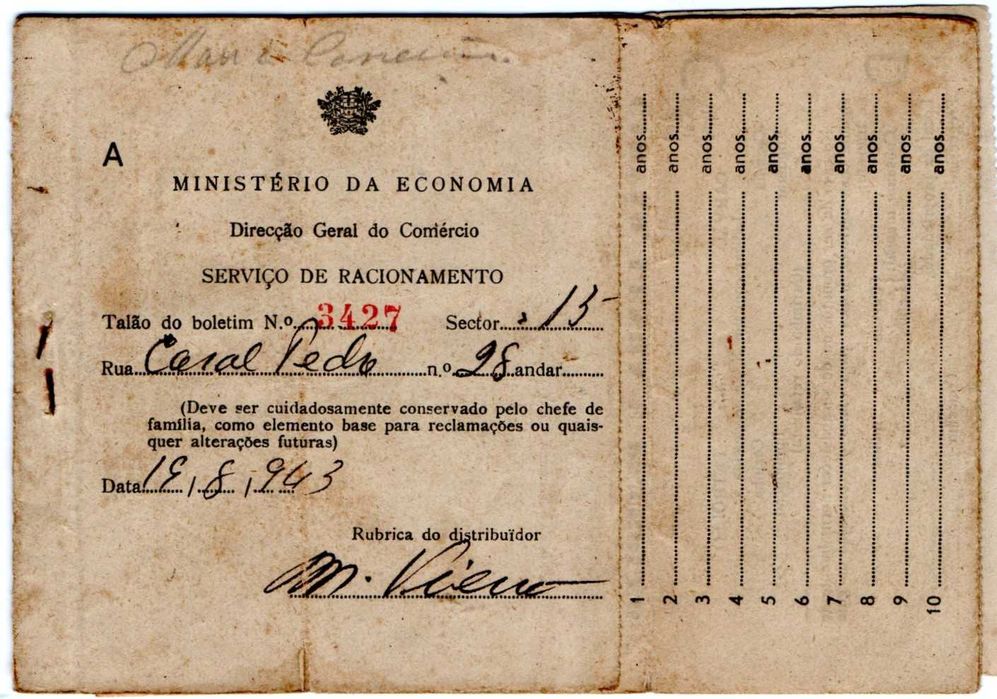 A
MINISTÉRIO DA ECONOMIA
Direcção Geral do Comércio
SERVIÇO DE RACIONAMENTO
Talão do boletim N.º 3427 Sector 15
Rua Casal Pedro n.º 28 andar
(Deve ser cuidadosamente conservado pelo chefe de
família, como elemento base para reclamações ou quais-
quer alterações futuras)
Data 19/8/943
Rubrica do distribuïdor
M.
1 anos
2 anos
3 anos
4 anos
5 anos
6 anos
7 anos
8 anos
9 anos
10 anos